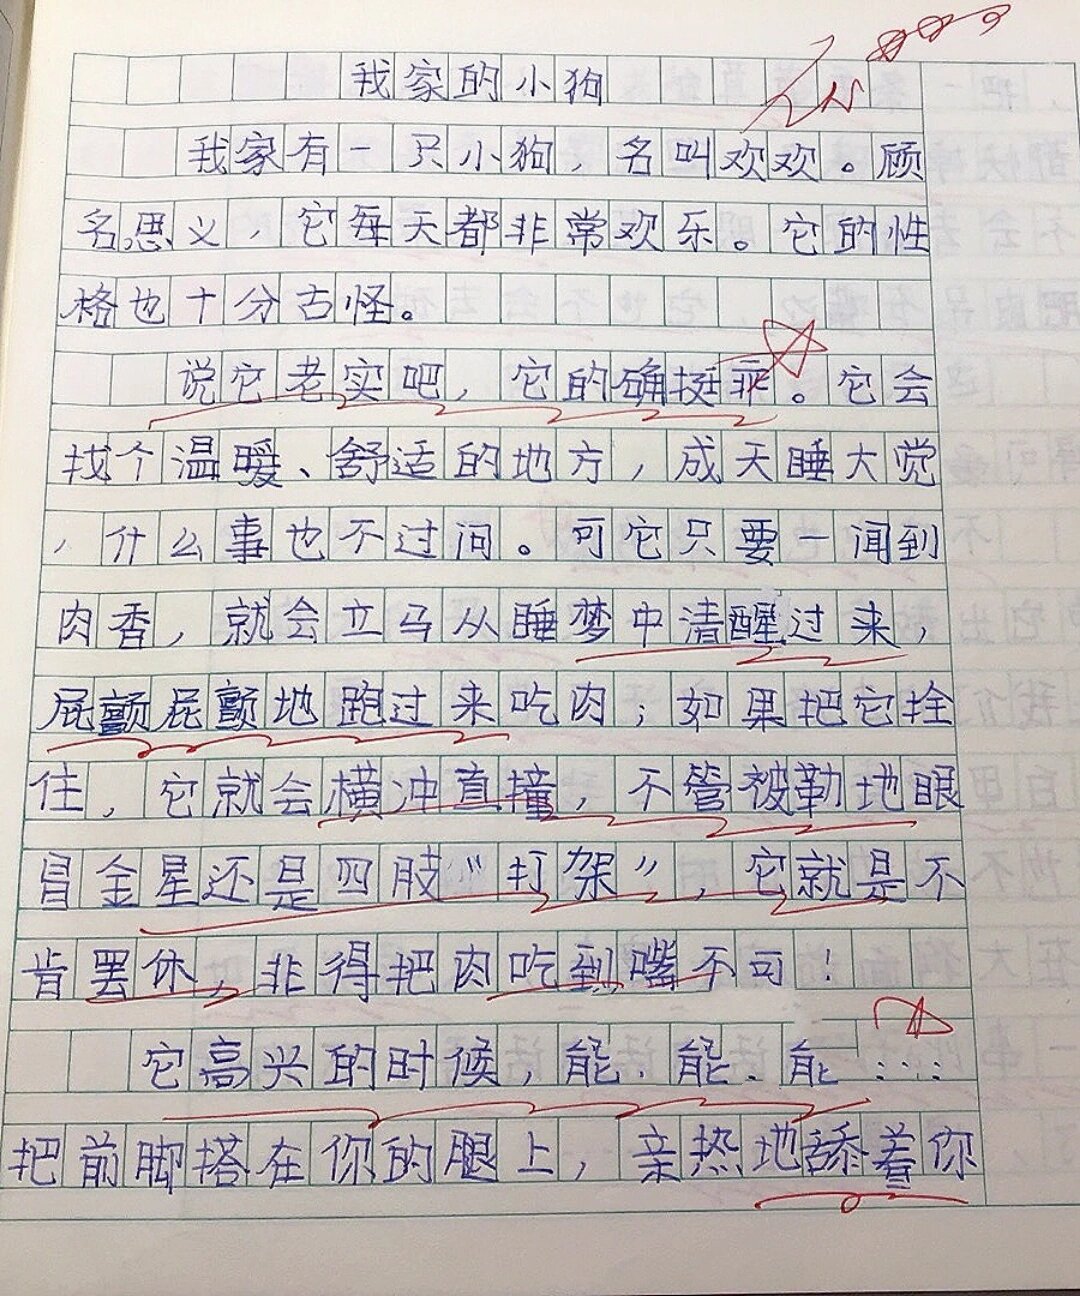 我家的小狗
我家有一只小狗，名叫欢欢。顾
名思义，它每天都非常欢乐。它的性
格也十分古怪。
说它老实吧，它的确挺乖。它会
找个温暖、舒适的地方，成天睡大觉
，什么事也不过问。可它只要一闻到
肉香，就会立马从睡梦中清醒过来，
屁颤屁颤地跑过来吃肉；如果把它拴
住，它就会横冲直撞，不管被勒地眼
冒金星还是四肢“打架”，它就是不
肯罢休，非得把肉吃到嘴不可！
它高兴的时候，能、能、能……
把前脚搭在你的腿上，亲热地舔着你